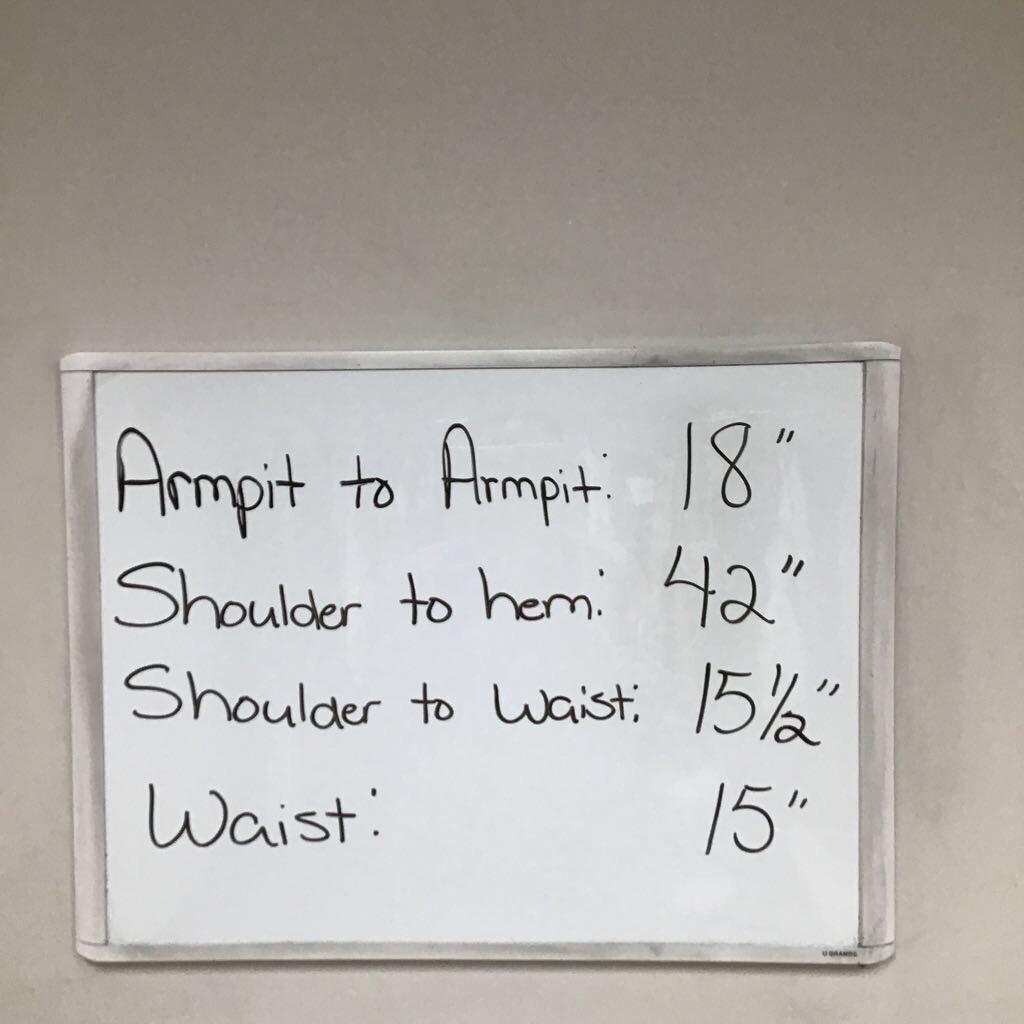 Armpit to Armpit: 18"
Shoulder to hem: 42"
Shoulder to Waist: 15½"
Waist: 15"
U BRANDS